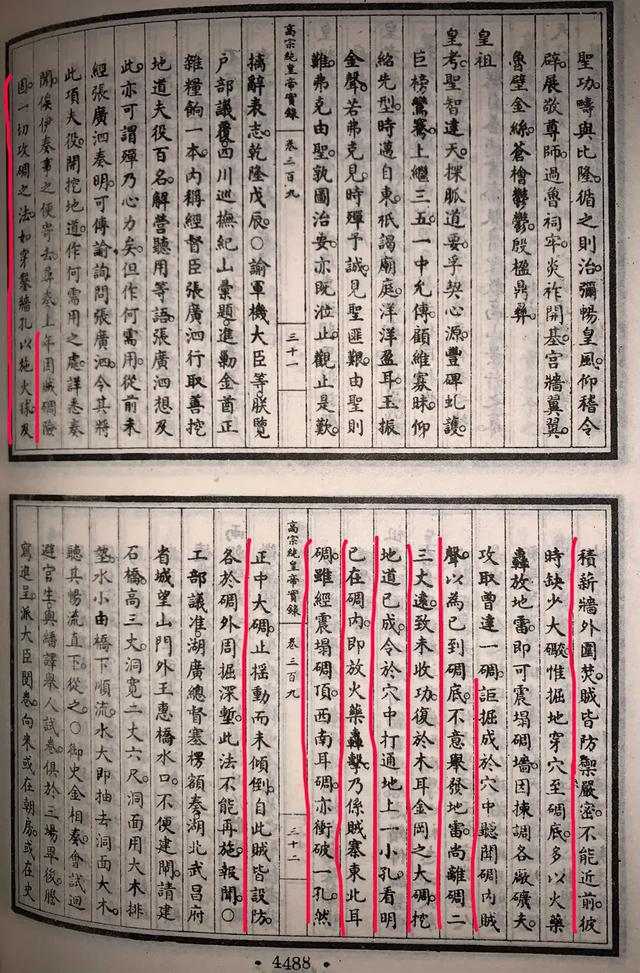 聖功。疇與比隆。循之則治。彌暢皇風。仰稽令
辟。展敬尊師。過魯祠牢。炎祚開基。宮牆翼翼。
魯壁金絲。蒼檜鬱鬱。殷楹鼎彝。
皇祖
皇考。聖智達天。探脈道要。孚契心源。豐碑虬護。
巨榜鸞騫。上繼三五。一中允傳。顧維寡昧。仰
紹先型。時邁自東。祇謁廟庭。洋洋盈耳。玉振
金聲。若弗克見。時殫予誠。見聖匪艱。由聖則
難。弗克由聖。孰圖治安。亦既涖止。觀止是歎。
高宗純皇帝實錄 卷三百九 三十一
摛辭表志。乾隆戊辰。○諭軍機大臣等。朕覽
戶部議覆四川巡撫紀山彙題。進勦金酋正
雜糧餉一本。內稱經督臣張廣泗行取善挖
地道夫役百名。解營聽用等語。張廣泗想及
此。亦可謂殫乃心力矣。但作何需用。從前未
經張廣泗奏明。可傳諭詢問張廣泗。令其將
此項夫役。開挖地道。作何需用之處。詳悉奏
聞。俟伊奏事之便寄去。尋奏。上年因賊碉險
固。一切攻碉之法。如穿鑿牆孔。以施火毬。及
積薪牆外圍焚。賊皆防禦嚴密。不能近前。彼
時缺少大礮。惟掘地穿穴至碉底。多以火藥
轟放地雷。即可震塌碉牆。因揀調各廠礦夫。
攻取曾達一碉。詎掘成於穴中。聽聞碉內賊
聲。以為已到碉底。不意舉發地雷。尚離碉二
三丈遠。致未收功。復於木耳金岡之大碉。挖
地道已成。令於穴中打通地上一小孔。看明
已在碉內。即放火藥轟擊。乃係賊寨東北耳
碉。雖經震塌碉頂。西南耳碉。亦衝破一孔。然
高宗純皇帝實錄 卷三百九 三十二
正中大碉。止搖動而未傾倒。自此賊皆設防。
各於碉外周掘深塹。此法不能再施。報聞。○
工部議准。湖廣總督塞楞額奏。湖北武昌府
省城望山門外。王惠橋水口。不便建閘。請建
石橋。高三丈。洞寬二丈六尺。洞面用大木排
墊。水小由橋下順流。水大即抽去洞面大木。
聽其暢流直下。從之。○御史金相奏。會試迴
避官生。與繙譯舉人試卷。俱於三場畢後。謄
寫進呈。派大臣閱卷。向來或在朝房。或在史
·4488·